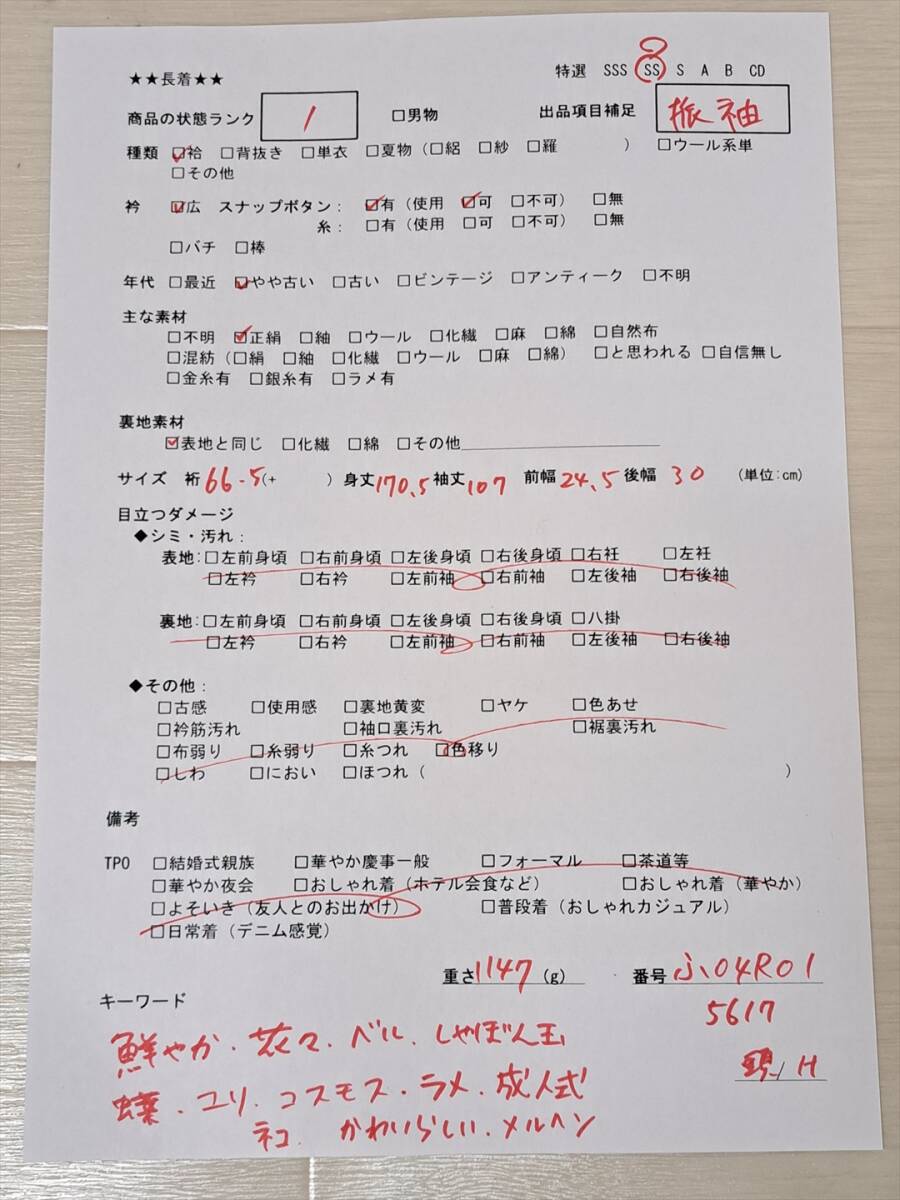 ★★長着★★
特選 SSS SS S A B CD
商品の状態ランク 1 □男物 出品項目補足 振袖
種類 ☑袷 □背抜き □単衣 □夏物（□絽 □紗 □羅 ） □ウール系単
□その他
衿 ☑広 スナップボタン： ☑有（使用 ☑可 □不可） □無
糸： □有（使用 □可 □不可） □無
□バチ □棒
年代 □最近 ☑やや古い □古い □ビンテージ □アンティーク □不明
主な素材
□不明 ☑正絹 □紬 □ウール □化繊 □麻 □綿 □自然布
□混紡（□絹 □紬 □化繊 □ウール □麻 □綿） □と思われる □自信無し
□金糸有 □銀糸有 □ラメ有
裏地素材
☑表地と同じ □化繊 □綿 □その他
サイズ 裄 66.5（+ ）身丈 170.5 袖丈 107 前幅 24.5 後幅 30 （単位：cm）
目立つダメージ
◆シミ・汚れ：
表地：□左前身頃 □右前身頃 □左後身頃 □右後身頃 □右衽 □左衽
□左衿 □右衿 □左前袖 □右前袖 □左後袖 □右後袖
裏地：□左前身頃 □右前身頃 □左後身頃 □右後身頃 □八掛
□左衿 □右衿 □左前袖 □右前袖 □左後袖 □右後袖
◆その他：
□古感 □使用感 □裏地黄変 □ヤケ □色あせ
□衿筋汚れ □袖口裏汚れ □裾裏汚れ
□布弱り □糸弱り □糸つれ □色移り
□しわ □におい □ほつれ（ ）
備考
TPO □結婚式親族 □華やか慶事一般 □フォーマル □茶道等
□華やか夜会 □おしゃれ着（ホテル会食など） □おしゃれ着（華やか）
□よそいき（友人とのお出かけ） □普段着（おしゃれカジュアル）
□日常着（デニム感覚）
重さ 1147 (g) 番号 ふ04R01
5617
キーワード
鮮やか・花々・ベル・しゃぼん玉
H
葉・ユリ・コスモス・ラメ・成人式
ネコ かわいらしい・メルヘン